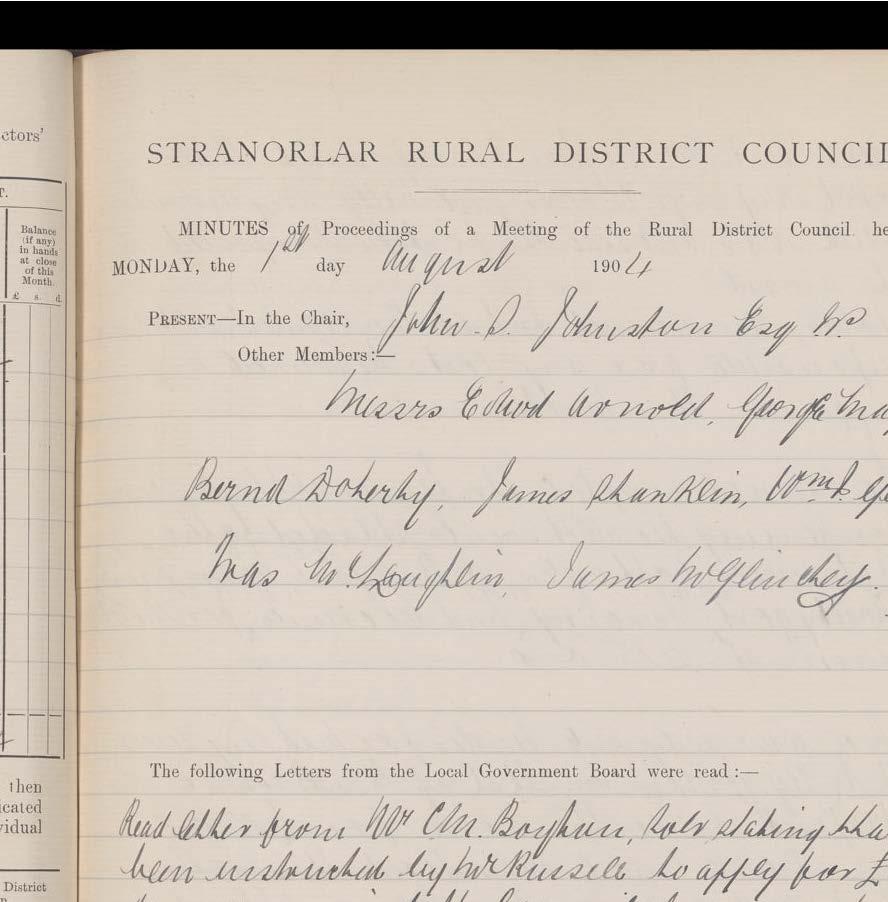 ctors'
T.
Balance
(if any)
in hands
at close
of this
Month.
£ s. d.
then
icated
vidual
District
STRANORLAR RURAL DISTRICT COUNCIL
MINUTES of Proceedings of a Meeting of the Rural District Council he
MONDAY, the 1st day August 1904
PRESENT—In the Chair, John S. Johnston Esq JP
Other Members:—
Messrs Edwd Arnold, George
Bernd Doherty, James Shanklin, Wm J.
McLoughlin, James McGlinchey.
The following Letters from the Local Government Board were read :—
Read letter from Mr C.M. Boyhan, Solr stating tha
been instructed by Mr Russell to apply for £